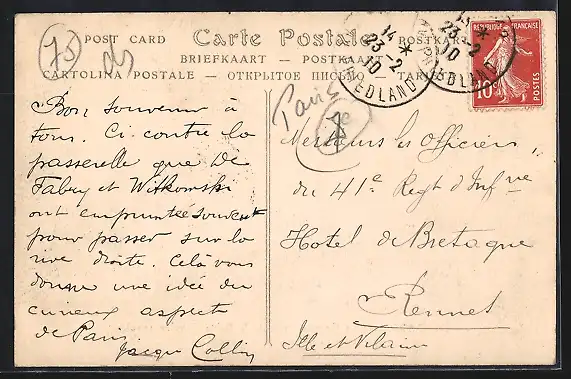 75
POST CARD Carte Postale POSTKARTE
BRIEFKAART — POSTKAART
CARTOLINA POSTALE — ОТКРЫТОЕ ПИСЬМО —
14 *
23-2
10
14 *
23-2
10
REPUBLIQUE FRANÇAISE
10c
Paris
Bon souvenir à
tous. Ci contre la
passerelle que De
Fabry et Witkowski
ont empruntée souvent
pour passer sur la
rive droite. Celà vous
donne une idée du
curieux aspect
de Paris
Messieurs les Officiers
du 41e Regt d'Infrie
Hotel de Bretagne
Rennes
Ille et Vilaine